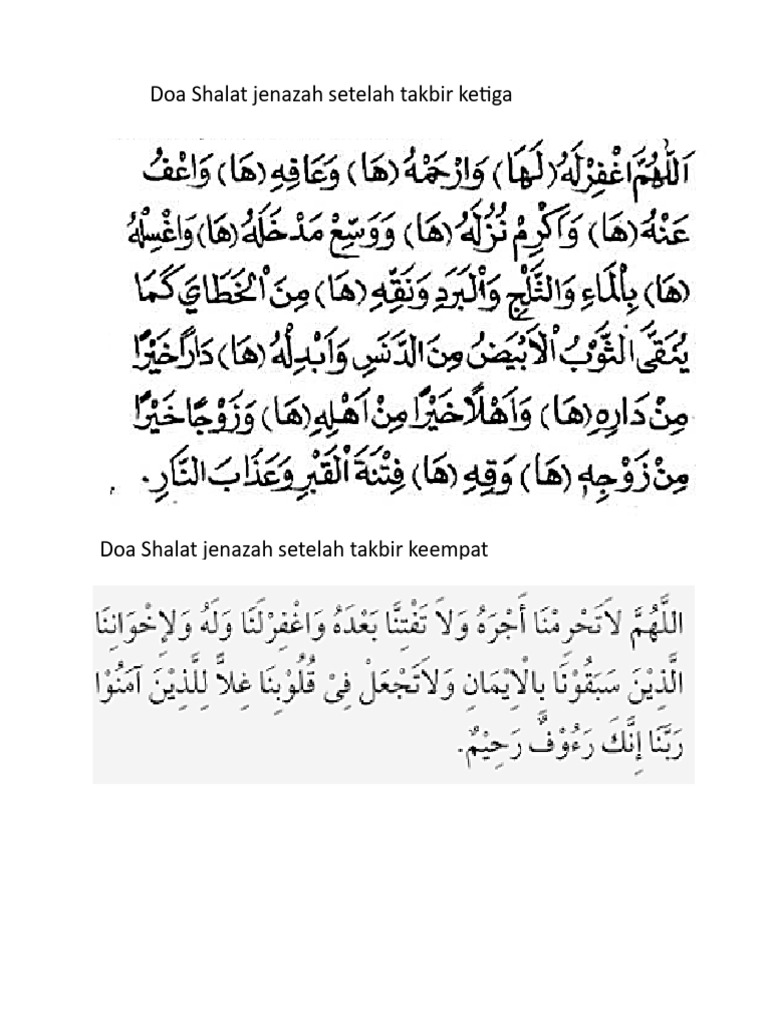 Doa Shalat jenazah setelah takbir ketiga
اَللّٰهُمَّ اغْفِرْ لَهُ (لَهَا) وَارْحَمْهُ (هَا) وَعَافِهِ (هَا) وَاعْفُ
عَنْهُ (هَا) وَاَكْرِمْ نُزُلَهُ (هَا) وَوَسِّعْ مَدْخَلَهُ (هَا) وَاغْسِلْهُ
(هَا) بِالْمَاءِ وَالثَّلْجِ وَالْبَرَدِ وَنَقِّهِ (هَا) مِنَ الْخَطَايَ كَمَا
يُنَقَّى الثَّوْبُ الْاَبْيَضُ مِنَ الدَّنَسِ وَاَبْدِلْهُ (هَا) دَارًا خَيْرًا
مِنْ دَارِهِ (هَا) وَاَهْلًا خَيْرًا مِنْ اَهْلِهِ (هَا) وَزَوْجًا خَيْرًا
مِنْ زَوْجِهِ (هَا) وَقِهِ (هَا) فِتْنَةَ الْقَبْرِ وَعَذَابَ النَّارِ.
Doa Shalat jenazah setelah takbir keempat
اللَّهُمَّ لاَتَحْرِمْنَا أَجْرَهُ وَلاَ تَفْتِنَّا بَعْدَهُ وَاغْفِرْلَنَا وَلَهُ وَلِإِخْوَانِنَا
الَّذِيْنَ سَبَقُوْنَا بِالْاِيْمَانِ وَلاَتَجْعَلْ فِىْ قُلُوْبِنَا غِلاًّ لِلَّذِيْنَ آمَنُوْا
رَبَّنَا إِنَّكَ رَءُوْفٌ رَحِيْمٌ.